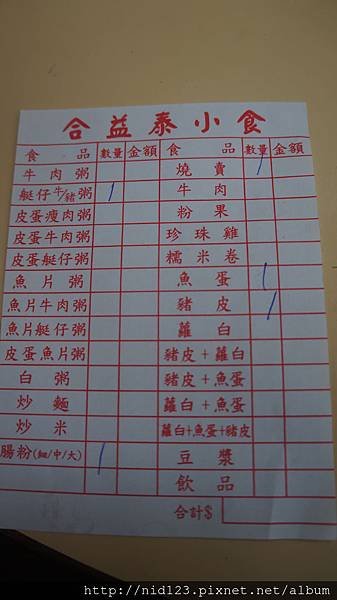 合益泰小食
食 品 數量 金額 食 品 數量 金額
牛肉粥 燒賣 /
艇仔牛/豬粥 1 牛肉
皮蛋瘦肉粥 粉果
皮蛋牛肉粥 珍珠雞
皮蛋艇仔粥 糯米卷
魚片粥 魚蛋 /
魚片牛肉粥 豬皮 /
魚片艇仔粥 蘿白
皮蛋魚片粥 豬皮+蘿白
白粥 豬皮+魚蛋
炒麵 蘿白+魚蛋
炒米 蘿白+魚蛋+豬皮
腸粉(細/中/大) 1 豆漿
飲品
合計$
http://nid123.pixnet.net/album